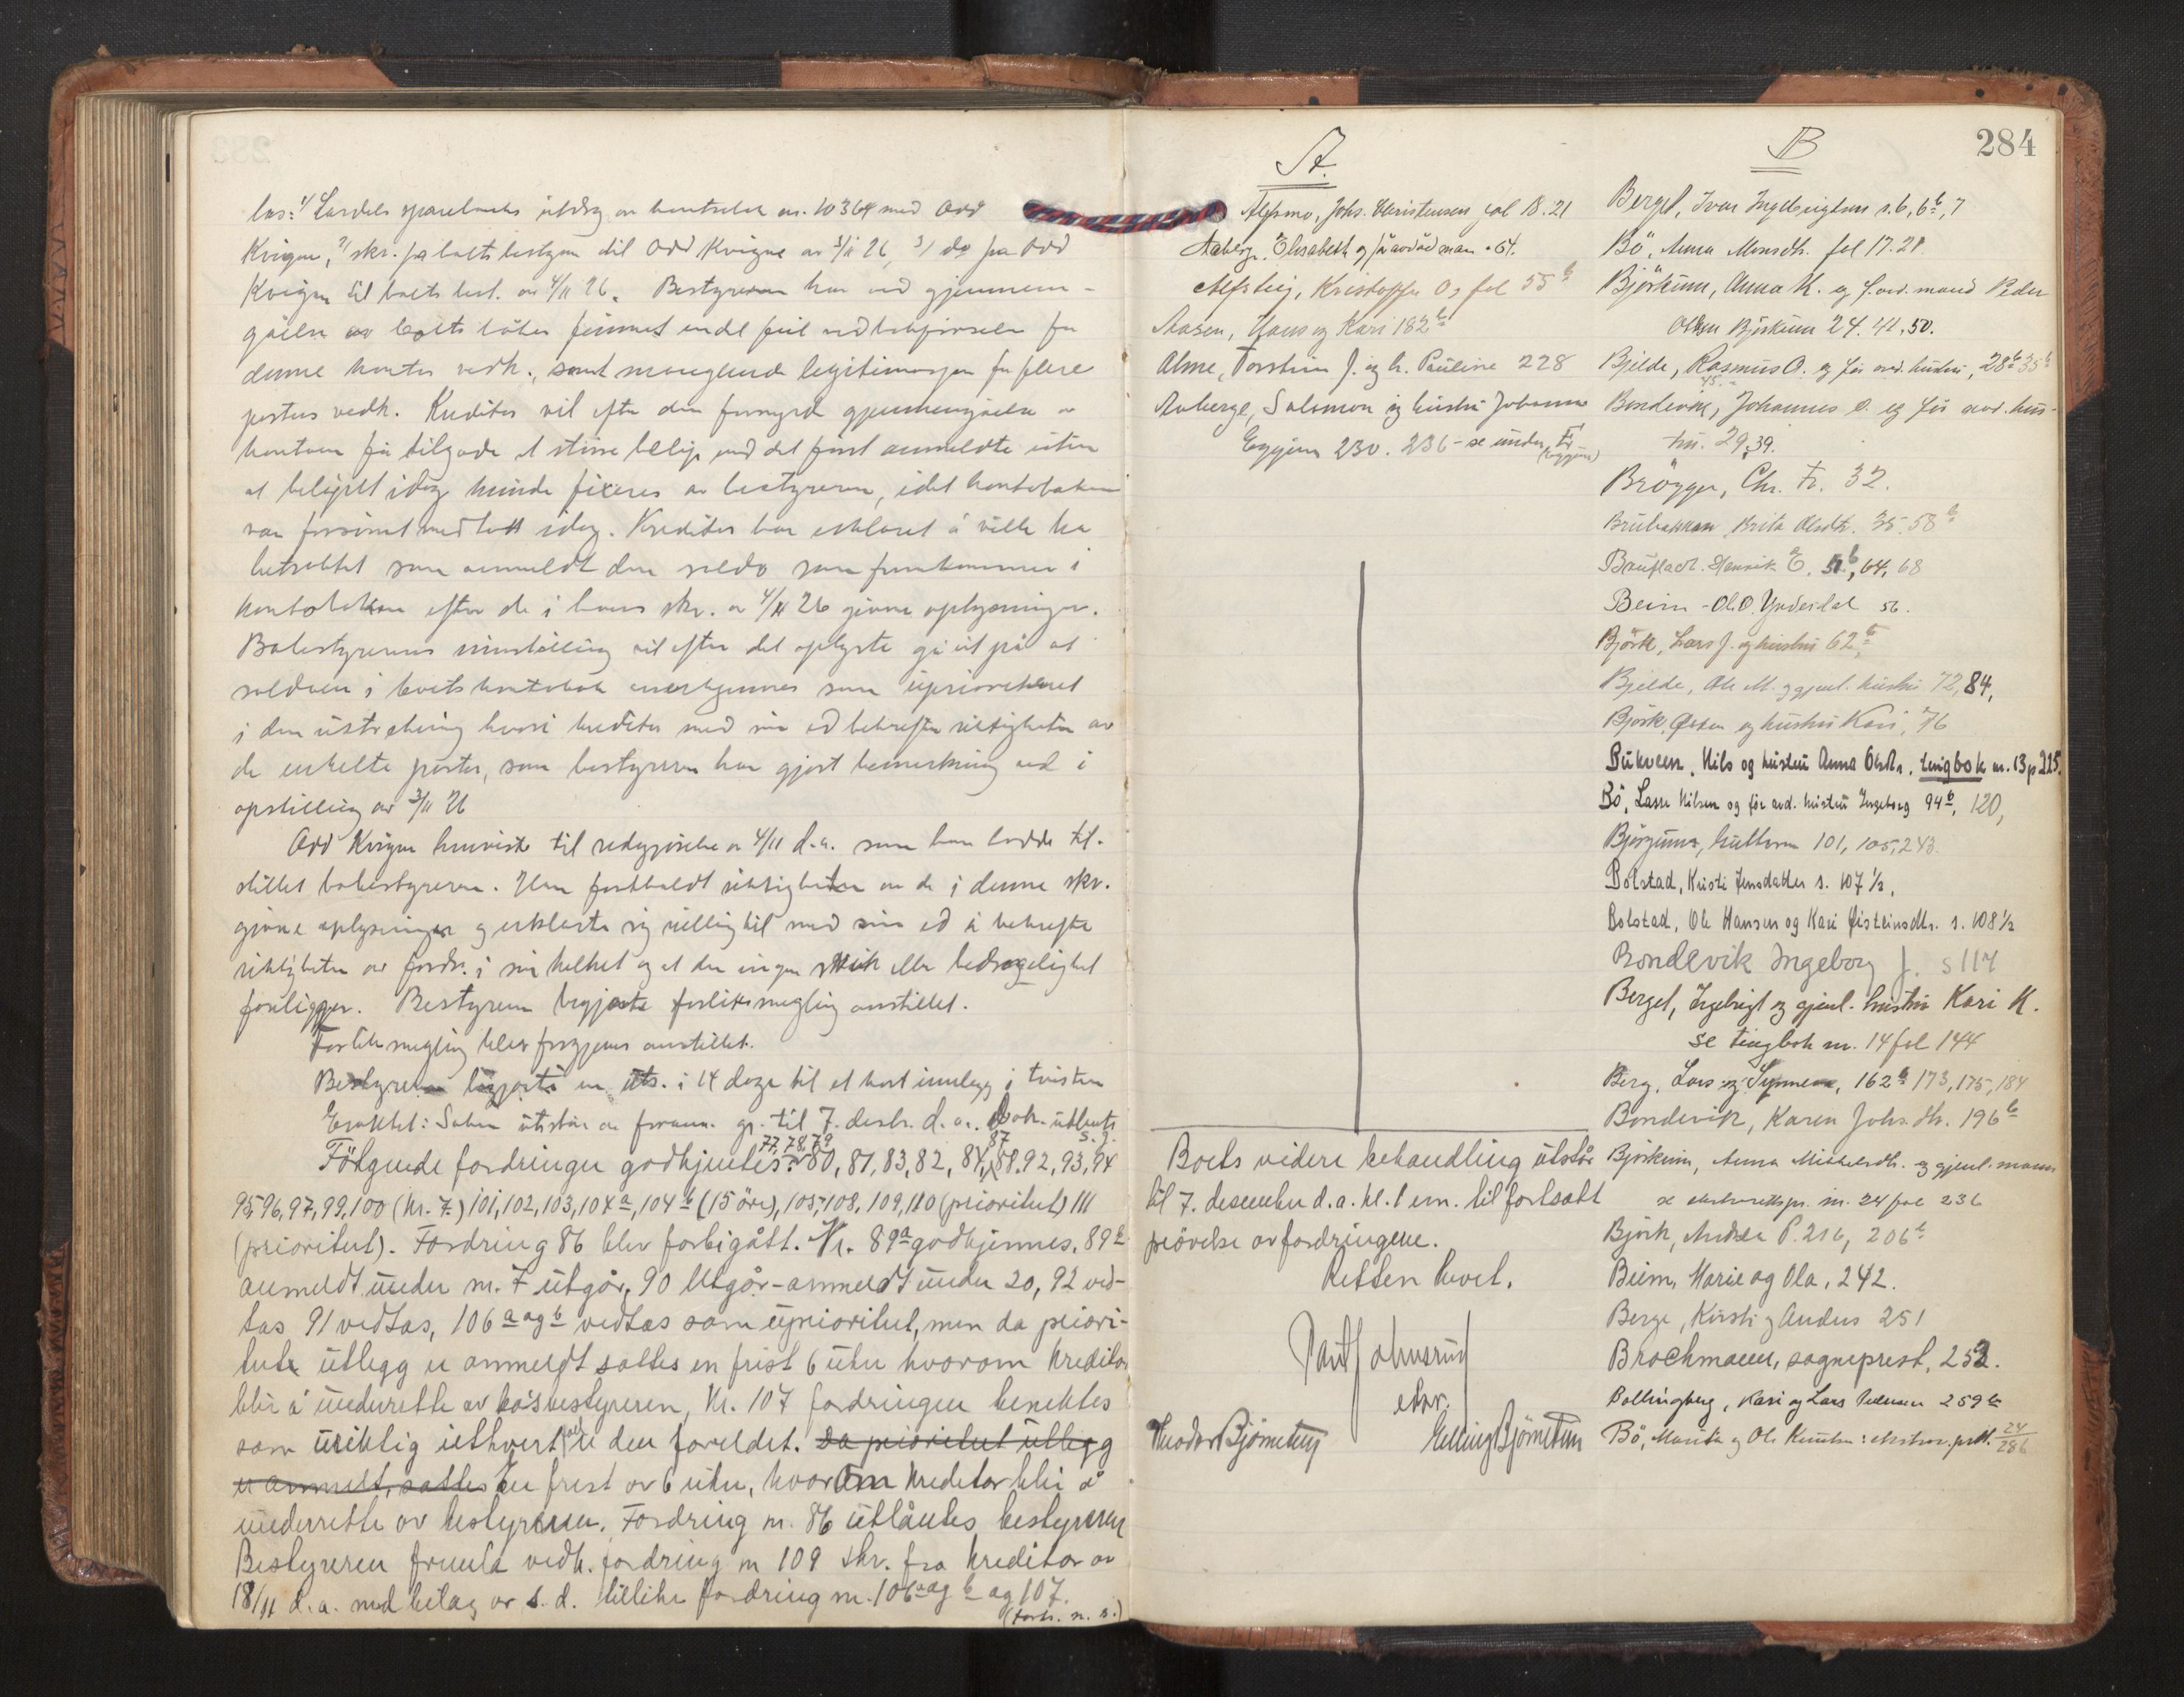 løs: 1/ Lærdals sparebanks utdrag av kontrabok nr. 10364 med Odd
Kvigne, 2/ skr. fra boets bestyrer til Odd Kvigne av 3/11 26, 3/ do fra Odd
Kvigne til boets best. av 4/11 26. Bestyreren har ved gjennem-
gåelse av boets bøker funnet endel feil ved bokførselen for
denne kontos vedk., samt manglende legitimasjon for flere
posters vedk. Kreditor vil efter den fornyede gjennemgåelse av
kontoen få tilgode et større beløp end det først anmeldte uten
at beløpet idag kunde fixeres av bestyreren, idet kontoboken
var forsömt medtatt idag. Kreditor har erklæret å ville ha
betraktet som anmeldt den saldo som fremkommer i
kontoboken efter de i hans skr. av 4/11 26 givne oplysninger.
Bobestyrerens innstilling vil efter det oplyste gå ut på at
saldoen i boets kontobok anerkjennes som uprioritert
i den utstrekning hvori kreditor med sin ed bekrefter riktigheten av
de enkelte poster, som bestyreren har gjort bemerkning ved i
opstilling av 3/11 26
Odd Kvigne henviste til redegjørelse av 4/11 d.a. som han hadde til-
stillet bobestyreren. Han fastholdt riktigheten av de i denne skr.
givne oplysninger og erklærte sig villig til med sin ed å bekrefte
riktigheten av fordr. i sin helhet og at der ingen svik eller bedragelighet
foreligger. Bestyreren begjærte forliksmegling anstillet.
Forliksmegling blev forgjeves anstillet.
Bestyreren begjærte en uts. i 14 dage til et kort innlegg i tvisten
Eraktet: Saken utstår av foran. gr. til 7. desbr. d.a. Dok. utlånts
Følgende fordringer godkjentes: 77, 78, 79 80, 81, 83, 82, 84, 87 88, 92, 93, 94
95, 96, 97, 99, 100 (kr. 7.) 101, 102, 103, 104 a, 104 b (15 öre), 105, 108, 109, 110 (prioritert) 111
(prioritert). Fordring 86 blev forbigått. Nr. 89 a godkjennes, 89 b
anmeldt under nr. 7 utgår, 90 utgår - anmeldt under 20, 92 ved-
tas 91 vedtas, 106 a og b vedtas som uprioritert, men da priori-
tert utlegg er anmeldt sattes en frist 6 uker hvorom kreditor
blir å underrette av bobestyreren, Nr. 107 fordringen benektes
som uriktig ethvert er den foreldet. Da prioritert utlegg
er anmeldt, sattes En frist av 6 uker, hvorom kreditor blir å
underrette av bestyreren. Fordring nr. 86 utlåntes bestyreren
Bestyreren fremla vedk. fordring nr 109 skr. fra kreditor av
18/11 d.a. med bilag av s.d. tillike fordring nr. 106 a og b og 107.
(forts. n. s.)
A.
Afsmo, Johs. Kristensen fol 18. 21
Aaberge, Elisabeth og før avdöd man. 64.
Kristoffer O, fol 55 b
Aasen, Hans og Kari 182 b
Alme, Torstein J. og h. Pauline 228
Auberge, Salomon og hustru Johanne
Eggum 230. 236 - se under E (Eggum)
Boets videre behandling utstår
til 7. desember d.a. kl. 1 em. til fortsatt
prövelse av fordringene.
Retten hevet.
Paul Johnsrud
ekstr.
Theodor Bjørnetun
Elling Bjørnetun
B
284
Berget, Ivar Ingebrigtson s. 6, 6 b, 7
Bö, Anna Monsdtr. fol 17. 28.
Björkum, Anna K. og f. avd. mand Peder
Olsen Björkum 24. 42, 50.
Bjelde, Rasmus O. og før avd. hustru, 28 b 35 b
Bondevik, Johannes O. og før avd. hus-
tru. 29, 39. 45.
Brøgger, Chr. Fr. 32.
Brubakken Brita Olsdtr. 35. 58 b
Henrik E. 51 b, 64, 68
Beim - Ola O. Ynderdal 56.
Björk, Lars J. og hustru 62 b,
Bjelde, Ole M. og gjenl. hustru 72, 84,
Björk, Østen og hustru Kari, 76
Bukveen, Nils og hustru Anna Olsdtr. tingbok nr. 13 p 225.
Bö, Lasse Nilsen og før avd. hustru Ingeborg 94 b, 120,
Björgum, Guttorm 101, 105, 243.
Bolstad, Kristi Jensdatter s. 107 1/2,
Bolstad, Ole Hansen og Kari Øisteinsdtr. s. 108 1/2
Bondevik Ingeborg J. s 117
Berget, Ingebrigt og gjenl. hustru Kari K.
se tingbok nr. 14 fol 144
Berg, Lars og Synneva, 162 b 173, 175, 184
Bondevik, Karen Johs.dtr. 196 b
Björkum, Anna Mikkelsdtr. og gjenl. mann
se ekstrarettspr. nr. 24 fol 236
Björk, Andrea P. 216, 206 b
Beim, Marie og Ola, 242.
Berge, Kirsti og Anders 251
Brochmann, sogneprest, 252.
Bollingberg, Kari og Lars Pedersen 259 b
Bö, Marita og Ole Knutsen: ekstrar. prot. 24/286